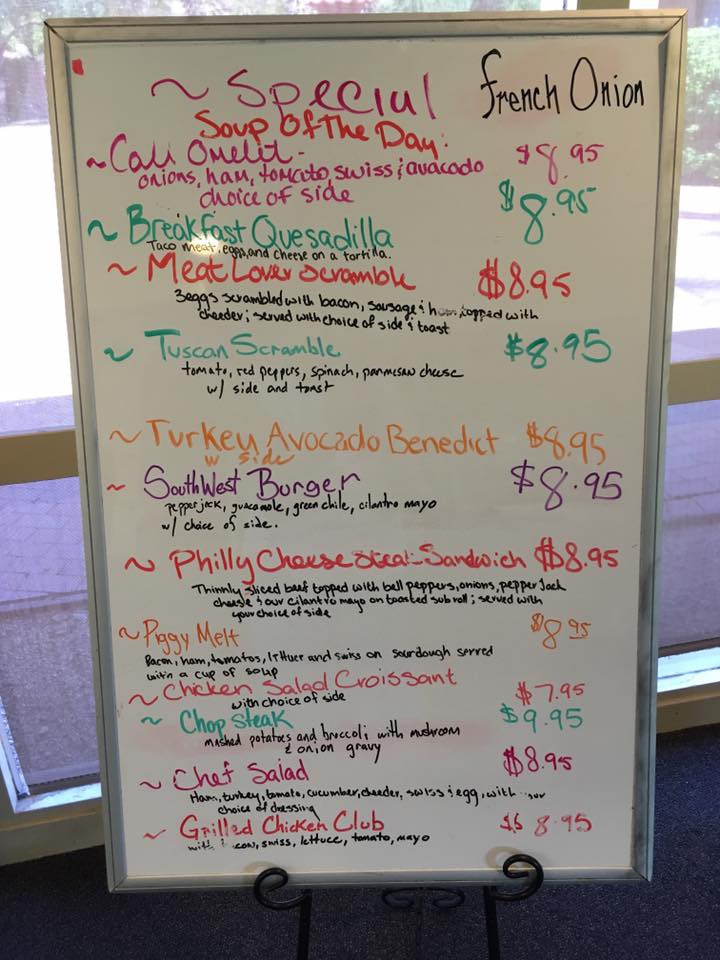 ~ Special French Onion
Soup Of The Day:
~Cali Omelit- $8.95
onions, ham, tomato, swiss & avacado
choice of side
~ Breakfast Quesadilla $8.95
Taco meat, eggs, and cheese on a tortilla.
~ Meat Lover Scramble $8.95
3eggs scrambled with bacon, sausage & ham, topped with
cheeder; served with choice of side & toast
~ Tuscan Scramble $8.95
tomato, red peppers, spinach, parmesan cheese
w/ side and toast
~ Turkey Avocado Benedict $8.95
w side
~ SouthWest Burger $8.95
pepperjack, guacamole, green chile, cilantro mayo
w/ choice of side.
~ Philly Cheese Steak Sandwich $8.95
Thinnly sliced beef topped with bell peppers, onions, pepper Jack
cheese & our cilantro mayo on toasted sub roll; served with
your choice of side
~Piggy Melt $8.95
Bacon, ham, tomatos, lettuer and swiss on sourdough served
with a cup of soup
~ Chicken Salad Croissant $7.95
with choice of side
~ Chop Steak $9.95
mashed potatoes and broccoli with mushroom
& onion gravy
~ Chef Salad $8.95
Ham, turkey, tomato, cucumber, cheeder, swiss & egg, with
choice of dressing
~ Grilled Chicken Club $8.95
with swiss, lettuce, tomato, mayo